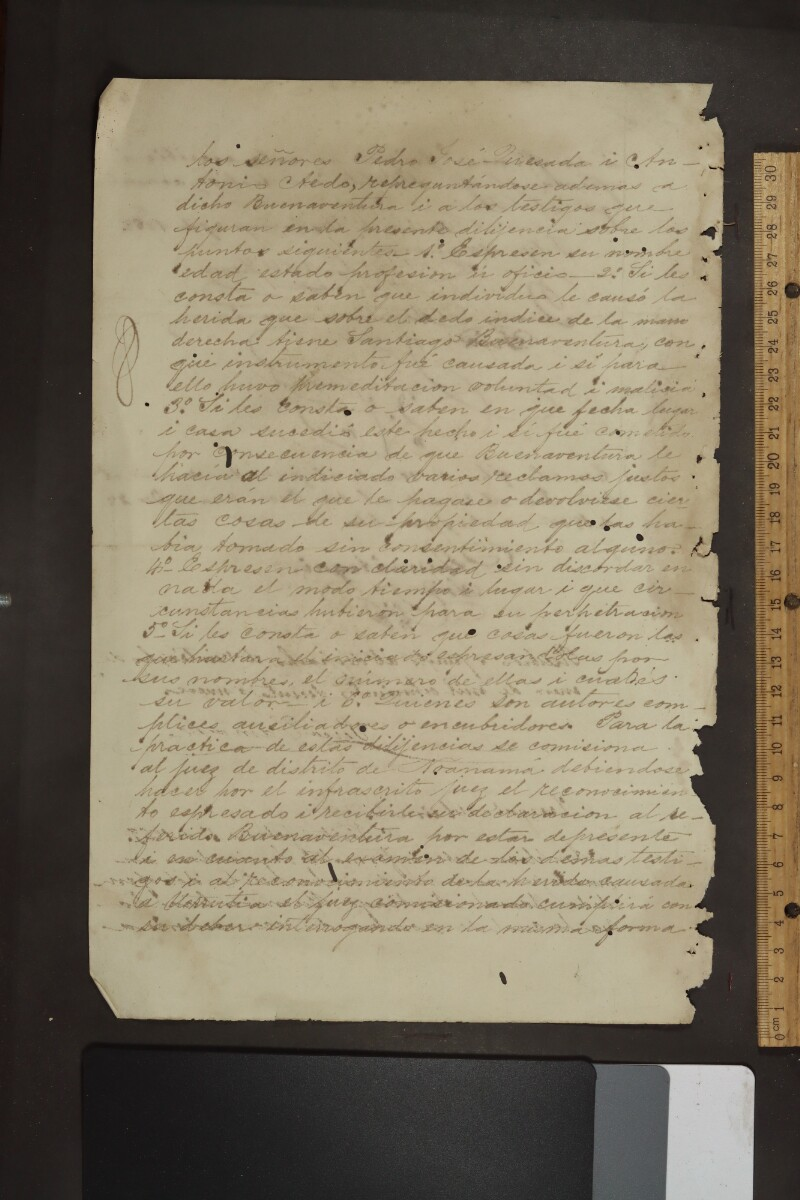 los señores Pedro José Quesada i An-
toni Aedo, repreguntándose ademas a
dicho Buenaventura i a los testigos que
figuran en la presente dilijencia sobre los
puntos siguientes 1º Espresen su nombre
edad, estado profesion u oficio 2º Si les
consta o saben que individuo le causó la
herida que sobre el dedo indice de la mano
derecha tiene Santiago Buenaventura, con
qué instrumento fué causada i si para
ello huvo premeditacion voluntad i malicia
3º Si les consta o saben en que fecha lugar
i casa sucedió este hecho i si fué cometido
por consecuencia de que Buenaventura le
hacía al indiciado varios reclamos justos
que eran el que le pagase o devolviese cier-
tas cosas de su propiedad que las ha-
bia tomado sin consentimiento alguno.
4º Espresen con claridad, sin discordar en
nada el modo tiempo i lugar i que cir-
cunstancias hubieron para su perpetracion
5º Si les consta o saben que cosas fueron las
que hurtara el espresandolas por
sus nombres, el número de ellas i cuál és
su valor i 6º Quienes son autores com-
plices ausiliadores o encubridores. Para la
practica de estas dilijencias se comisiona
al juez de distrito de Noanamá debiendose
hacer por el infrascrito juez el reconocimien
to espresado i recibirle su declaracion al re-
ferido Buenaventura por estar depresente
i en cuanto al exámen de los demas testi-
gos i al reconocimiento de la herida causada
a el juez comisionado cumplirá con
su deber interrogando en la misma forma